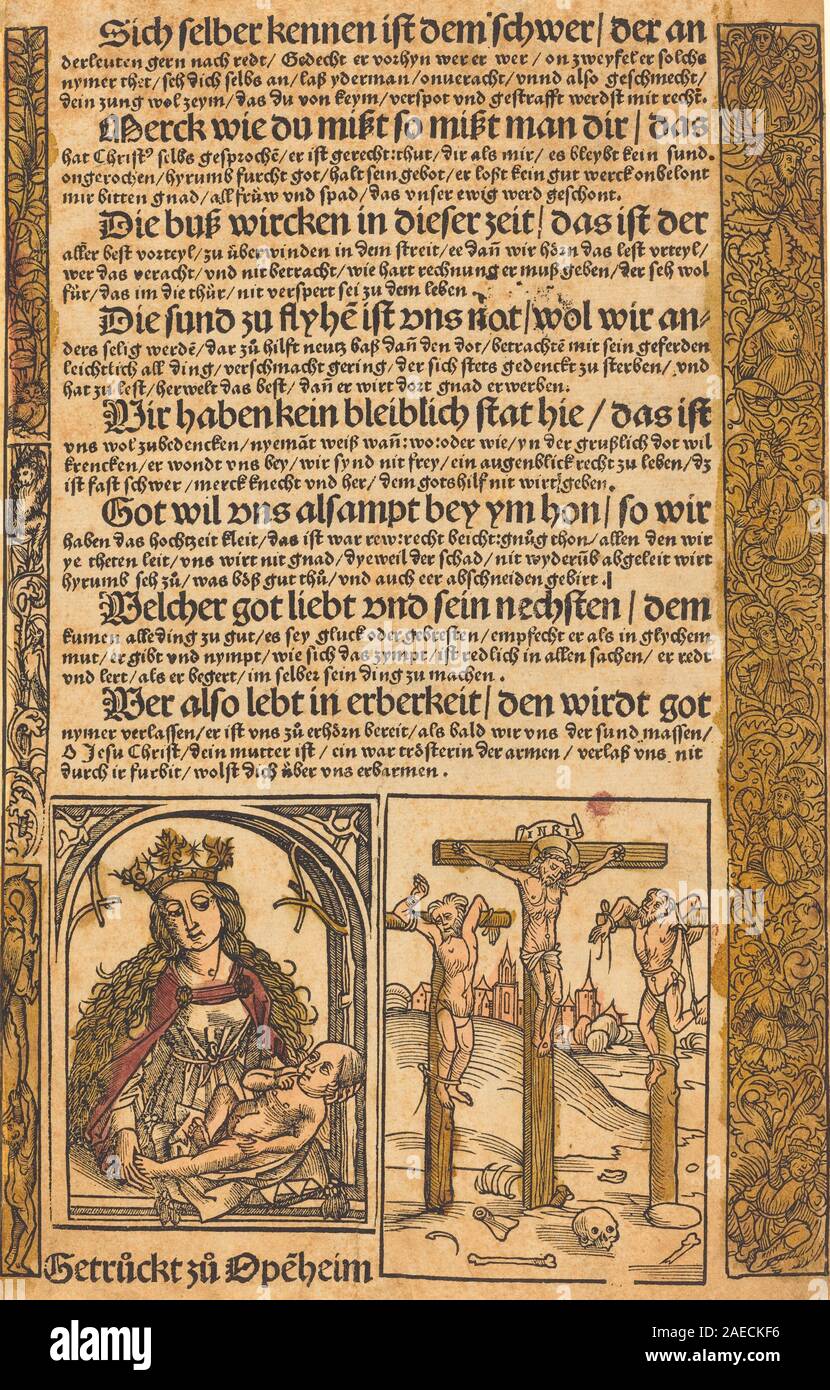 Sich selber kennen ist dem schwer / der an
derleuten gern nach redt / Gedecht er vorhyn wer er wer / on zweyfel er solchs
nymer thet / seh dich selbs an / laß yderman / onueracht / vnnd also geschmecht /
dein zung wol zeym / das du von keym / verspot vnd gestrafft werdst mit recht.
Merck wie du mißt so mißt man dir / das
hat Christꝰ selbs gesprochē / er ist gerecht: thut / dir als mir / es bleybt kein sund.
ongerochen / hyrumb furcht got / halt sein gebot / er loßt kein gut werck onbelont
mir bitten gnad / all früw vnd spad / das vnser ewig werd geschont.
Die buß wircken in dieser zeit / das ist der
aller best vorteyl / zu überwinden in dem streit / ee dañ wir hörn das lest vrteyl /
wer das veracht / vnd nit betracht / wie hart rechnung er muß geben / der seh wol
für / das im die thür / nit verspert sei zu dem leben
Die sund zu flyhē ist vns not / wol wir an-
ders selig werdē / dar zů hilft neutz baß dañ den dot / betrachtē mit sein geferden
leichtlich all ding / verschmacht gering / der sich stets gedenckt zu sterben / vnd
hat zu lest / herwelt das best / dañ er wirt dort gnad erwerben.
Wir haben kein bleiblich stat hie / das ist
vns wol zubedencken / nyemāt weiß wañ: wo: oder wie / yn der grußlich dot wil
krencken / er wondt vns bey / wir synd nit frey / ein augenblick recht zu leben / dz
ist fast schwer / merck knecht vnd her / dem gots hilf nit wirt geben.
Got wil vns alsampt bey ym hon / so wir
haben das hochtzeit kleit / das ist war rew: recht beicht: gnůg thon / allen den wir
ye theten leit / vns wirt nit gnad / dyeweil der schad / nit wyderūb abgeleit wirt
hyrumb seh zů / was böß gut thů / vnd auch eer abschneiden gebirt.
Welcher got liebt vnd sein nechsten / dem
kumen alle ding zu gut / es sey gluck oder gebresten / empfecht er als in glychem
mut / er gibt vnd nympt / wie sich das zympt / ist redlich in allen sachen / er redt
vnd lert / als er begert / im selber sein ding zu machen.
Wer also lebt in erberkeit / den wirdt got
nymer verlassen / er ist vns zů erhörn bereit / als bald wir vns der sund massen /
O Jesu Christ / dein mutter ist / ein war trösterin der armen / verlaß vns nit
durch ir furbit / wolst dich über vns erbarmen.
INRI
Getrůckt zů Opēheim
alamy
Image ID: 2AECKF6
www.alamy.com